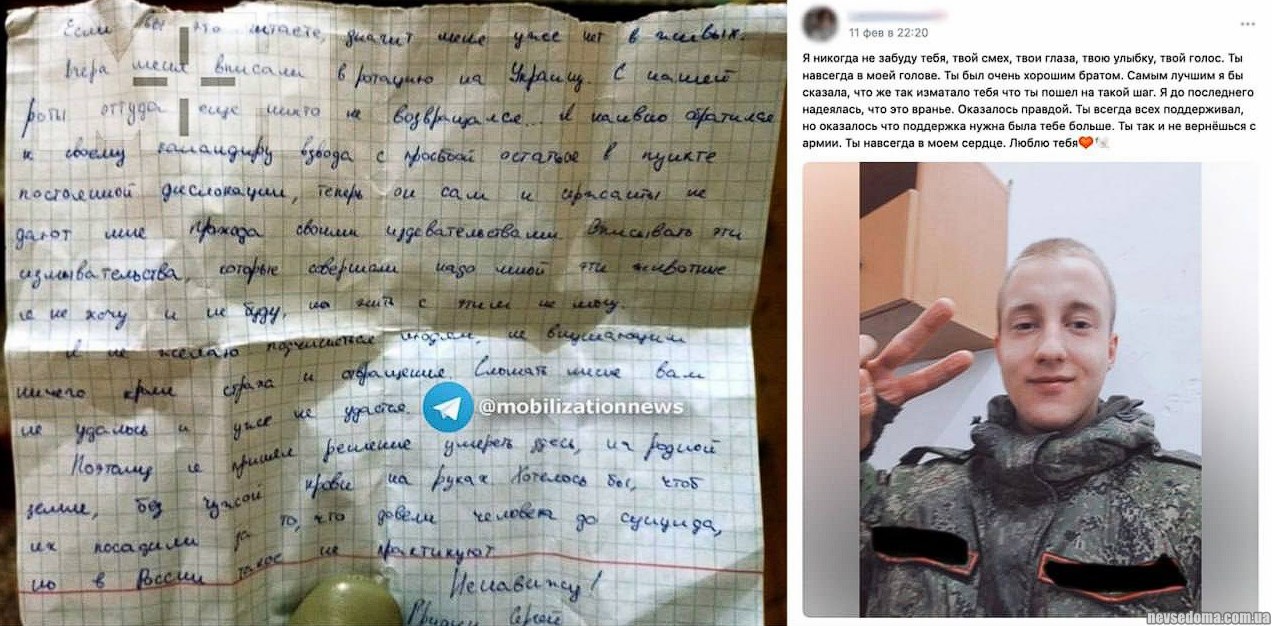 Если вы это читаете, значит меня уже нет в живых.
Вчера меня вписали в ротацию на Украину. С нашей
роты оттуда еще никто не возвращался... Я наивно обратился
к своему командиру взвода с просьбой остаться в пункте
постоянной дислокации, теперь он сам и сержанты не
дают мне прохода своими издевательствами Описывать эти
измывательства, которые совершали надо мной эти животные
я не хочу и не буду, но жить с этим не могу.
Я не желаю подчиняться людям, не внушающим
ничего кроме страха и отвращения. Сломать меня вам
не удалось и уже не удастся.
@mobilizationnews
Поэтому я принял решение умереть здесь, на родной
земле, без чужой крови на руках Хотелось бы, чтоб
их посадили за то, что довели человека до суицида,
но в России такое не практикуют
Ненавижу!
11 фев в 22:20
Я никогда не забуду тебя, твой смех, твои глаза, твою улыбку, твой голос. Ты
навсегда в моей голове. Ты был очень хорошим братом. Самым лучшим я бы
сказала, что же так изматало тебя что ты пошел на такой шаг. Я до последнего
надеялась, что это вранье. Оказалось правдой. Ты всегда всех поддерживал,
но оказалось что поддержка нужна была тебе больше. Ты так и не вернёшься с
армии. Ты навсегда в моем сердце. Люблю тебя❤️🕊
nevsedoma.com.ua